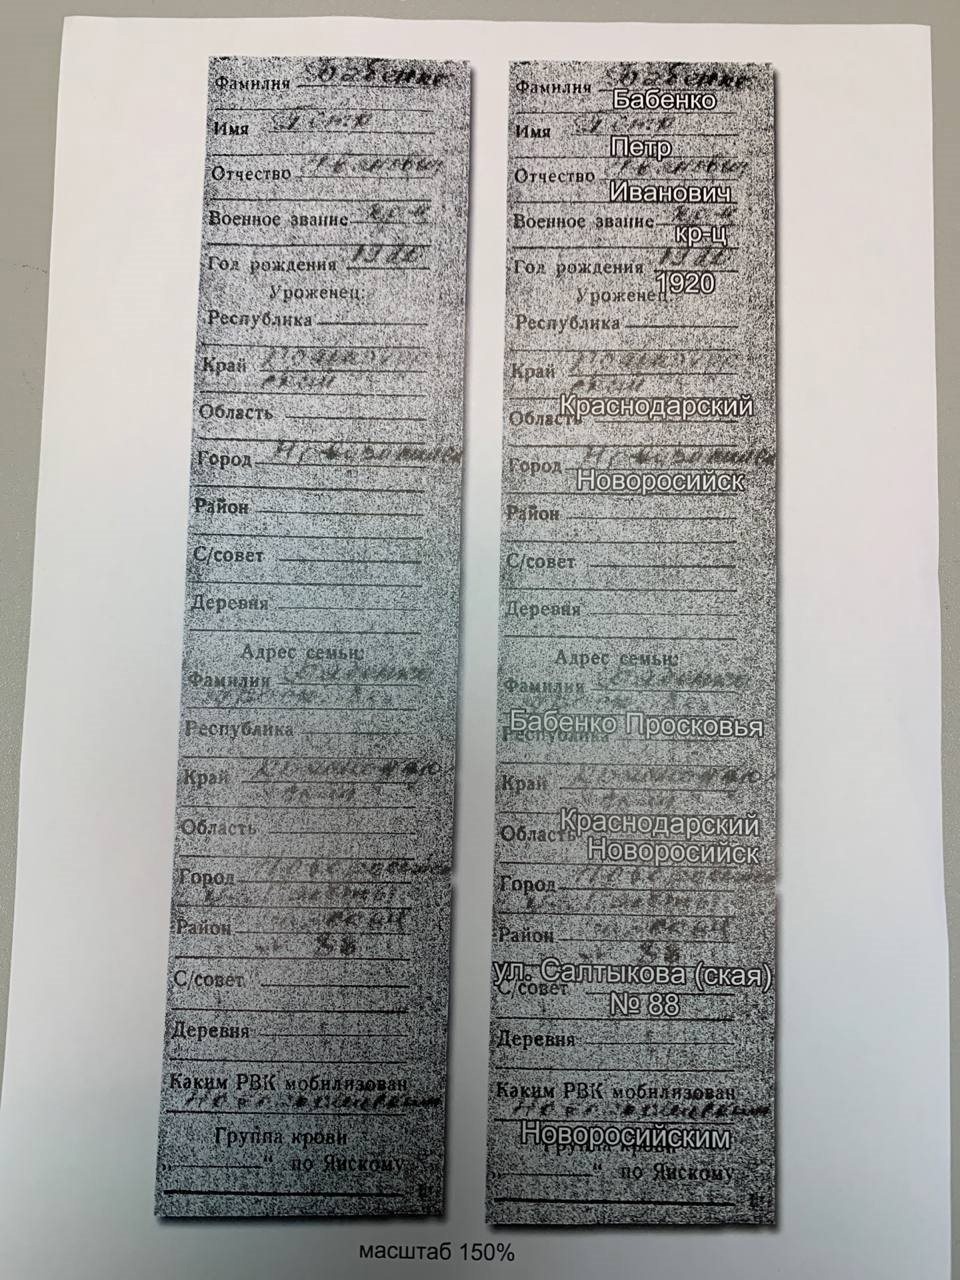 Фамилия Бабенко
Имя Петр
Отчество Иванович
Военное звание кр-ц
Год рождения 1920
Уроженец:
Республика
Край
Область
Город
Район
С/совет
Деревня
Адрес семьи:
Фамилия Бабенко
Республика
Край
Область
Город
Район
88
С/совет
Деревня
Каким РВК мобилизован
Группа крови
„ “ по Янскому
Фамилия Бабенко
Бабенко
Имя Петр
Петр
Отчество Иванович
Иванович
Военное звание кр-ц
кр-ц
Год рождения 1920
1920
Уроженец:
Республика
Край
Краснодарский
Область
Город
Новоросийск
Район
С/совет
Деревня
Адрес семьи:
Фамилия Бабенко
Бабенко Просковья
Республика
Край
Краснодарский
Область
Новоросийск
Город
Район
88
ул. Салтыкова (ская)
С/совет
№ 88
Деревня
Каким РВК мобилизован
Новоросийским
Группа крови
„ “ по Янскому
масштаб 150%